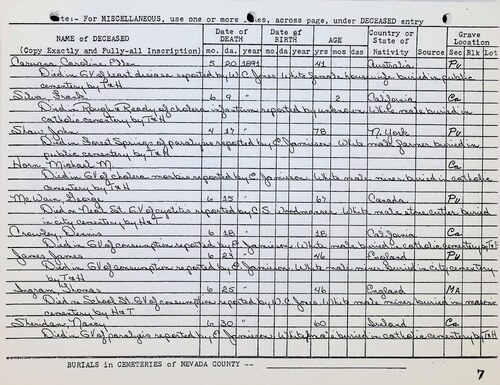 Note:- For MISCELLANEOUS, use one or more lines, across page, under DECEASED entry
NAME OF DECEASED (Copy Exactly and Fully-all Inscription) Date of DEATH mo. da. year Date of BIRTH mo. da. year AGE yrs mos das Country or State of Nativity Source Grave Location Sec Blk Lot
Caroline Ellen 5 20 1891 41 Australia Pu
Died in GV of heart disease reported by W.C. Jones White female housewife buried in public
cemetery by T&H
Silva, Frank 6 9 " 2 California Ca
Died in Rough & Ready of cholera infantum reported by unknown White male buried in
catholic cemetery by T&H
Shaw John 4 17 " 78 N. York Pu
Died in Forest Springs of paralysis reported by E Jamieson White male farmer buried in
public cemetery by T&H
Horn Michael M. Ca
Died in GV of cholera morbus reported by E Jamieson White male miner buried in catholic
cemetery by T&H
McWain, George 6 15 " 67 Canada Pu
Died on Neal St. GV of cystitis reported by C.S. Woodmansee White male stone cutter buried
in city cemetery by H&T
Crowley Dennis 6 18 " 18 California Ca
Died in GV of consumption reported by E Jamieson White male buried in catholic cemetery by T&H
James James 6 23 " 46 England Pu
Died in GV of consumption reported by E Jamieson White male miner buried in city cemetery
by T&H
Ingram Thomas 6 25 " 46 England MA
Died on School St GV of consumption reported by W.C. Jones White male miner buried in masonic
cemetery by H&T
Sheridan, Nancy 6 30 " 60 Ireland Ca
Died in GV of paralysis reported by E Jamieson White female buried in catholic cemetery by T&H
BURIALS in CEMETERIES of NEVADA COUNTY --
7